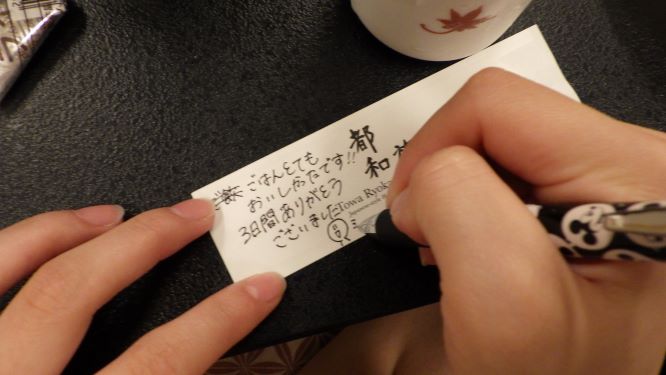 ごはんとても
おいしかったです!!
3日間ありがとう
ございました
都
和
Towa Ryok
Japanese style